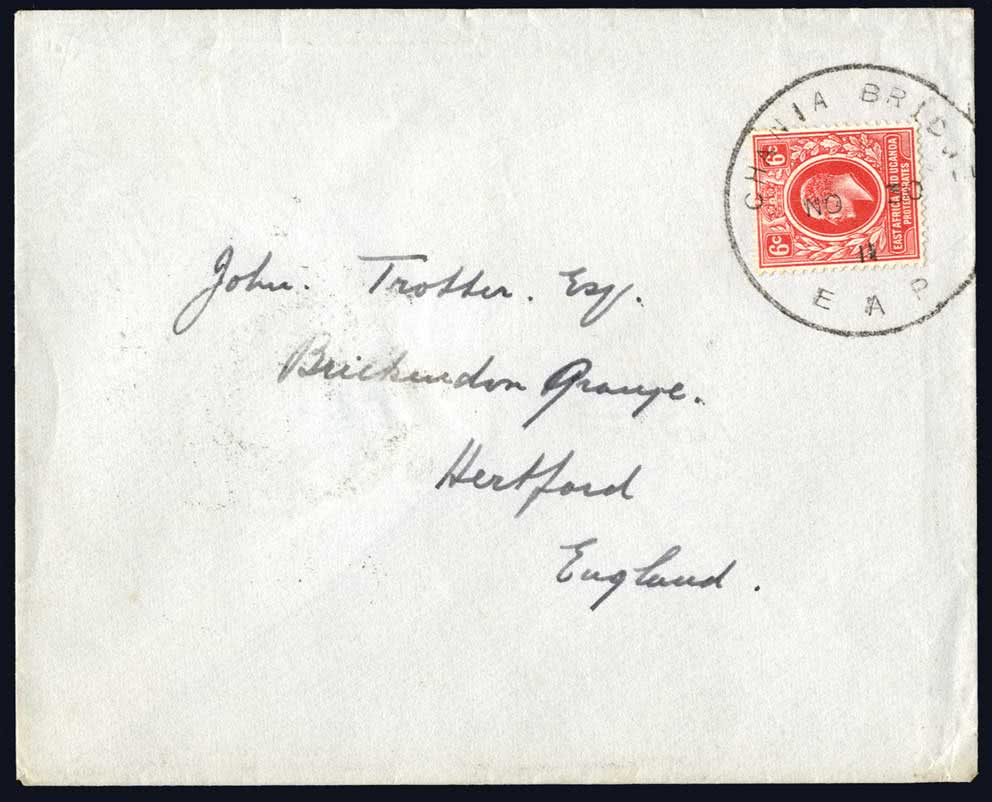 CHANIA BRIDGE
NO 10
11
E A P
6c 6c
EAST AFRICA AND UGANDA
PROTECTORATES
John. Trotter. Esq.
Brickendon Grange.
Hertford
England.